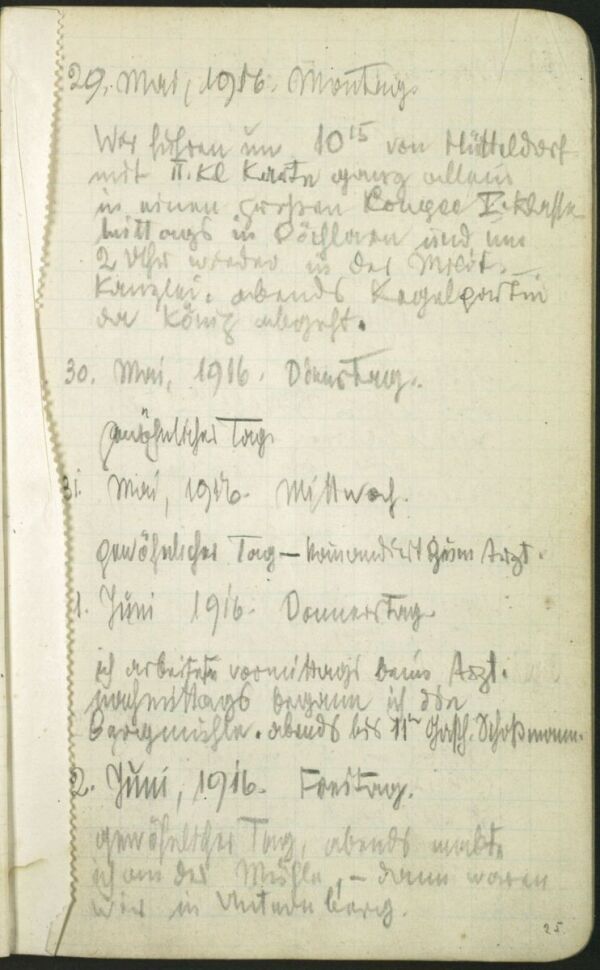 29. Mai, 1916. Montag.
Wir fuhren um 10¹⁵ von Hütteldorf
mit II. Kl Karte ganz allein
in einen großen Coupee I. Klasse
mittags in Pöchlarn und um
2 Uhr wieder in der Milit.-
Kanzlei. abends Kegelpartie
da König abgeht.
30. Mai, 1916. Dienstag.
gewöhnlicher Tag
31. Mai, 1916. Mittwoch.
gewöhnlicher Tag – komandiert zum Arzt.
1. Juni 1916. Donnerstag.
ich arbeitete vormittags beim Arzt.
nachmittags begann ich die
Bergmühle. abends bis 11ʰ Gasth. Schoßmann.
2. Juni, 1916. Freitag.
gewöhnlicher Tag, abends malte
ich an der Mühle, – dann waren
wir in Unternberg.
25.